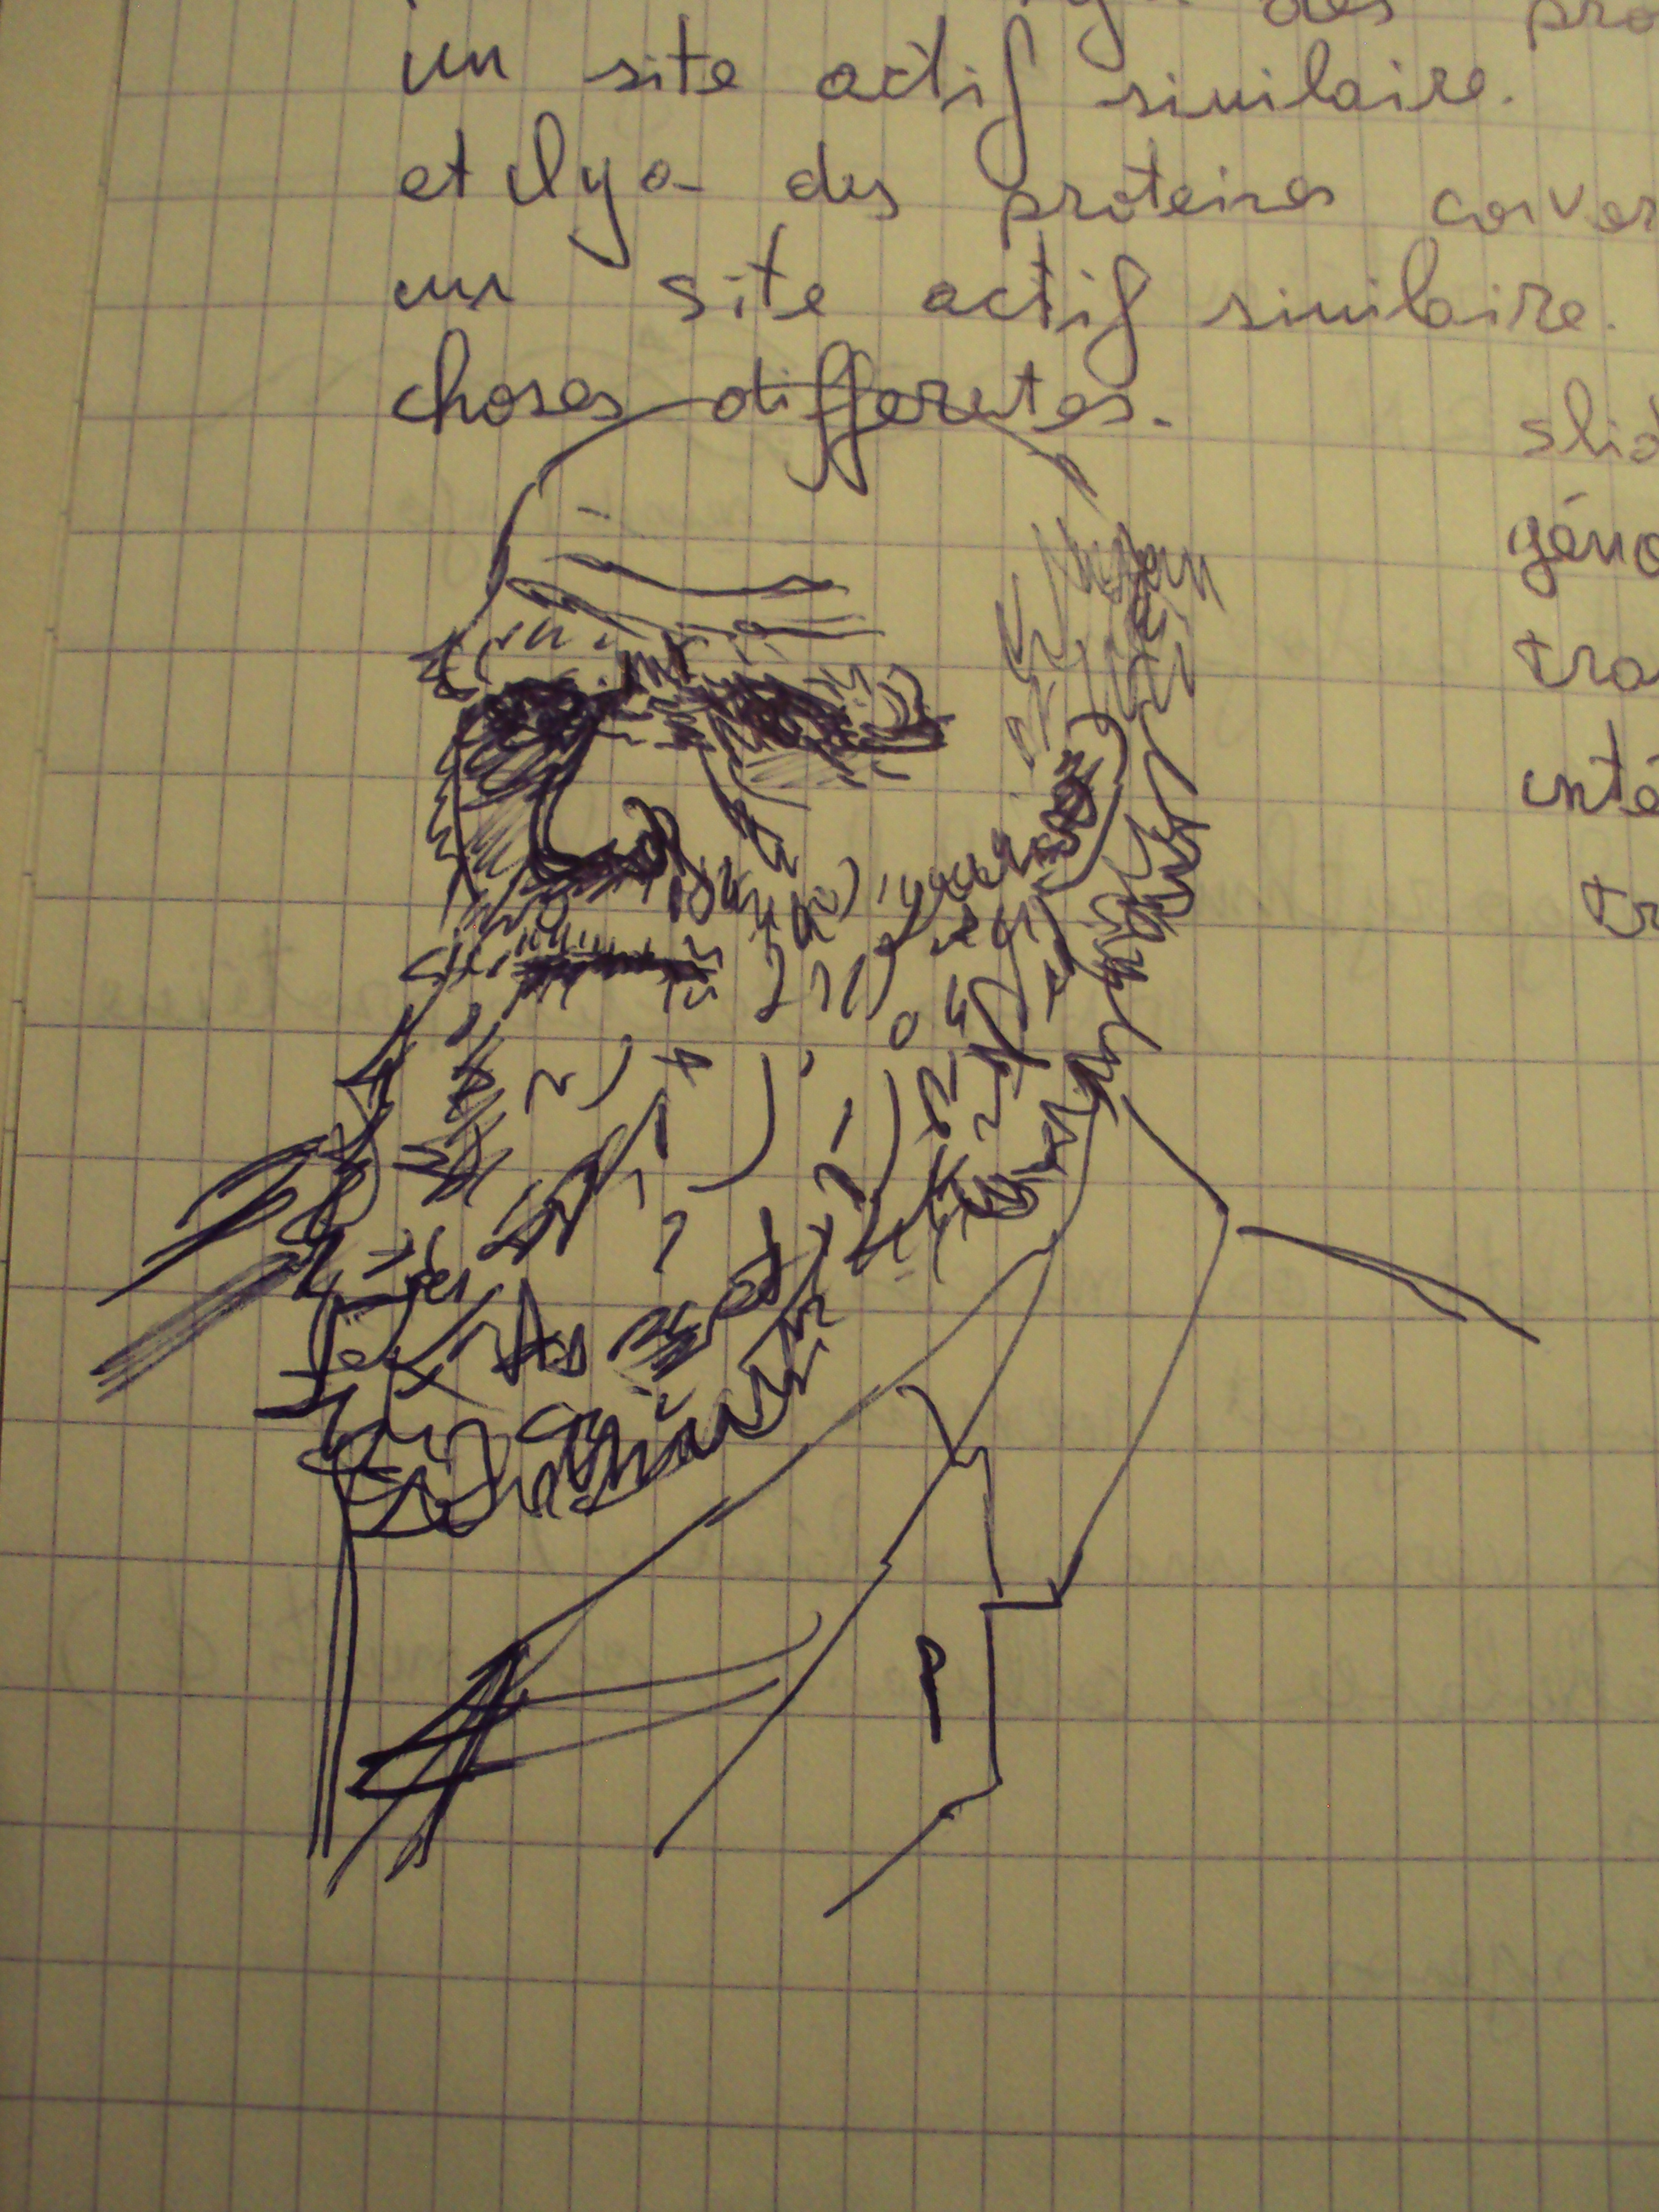 des pro
un site actif similaire.
et il y a des proteines conver
un site actif similaire.
choses differentes.
slid
géno
tra
inté
tr